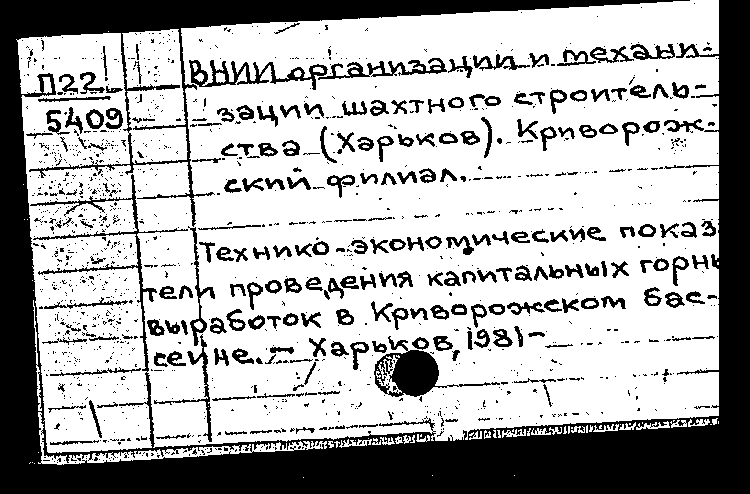 П22
5409
ВНИИ организации и механи-
зации шахтного строитель-
ства (Харьков). Криворож-
ский филиал.
Технико-экономические показ
тели проведения капитальных горны
выработок в Криворожском бас-
сейне. - Харьков, 1981-